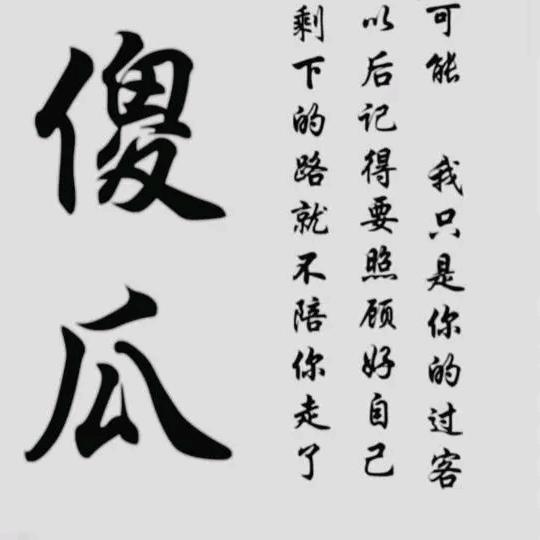 可能 我只是你的过客
以后记得要照顾好自己
剩下的路就不陪你走了
傻瓜